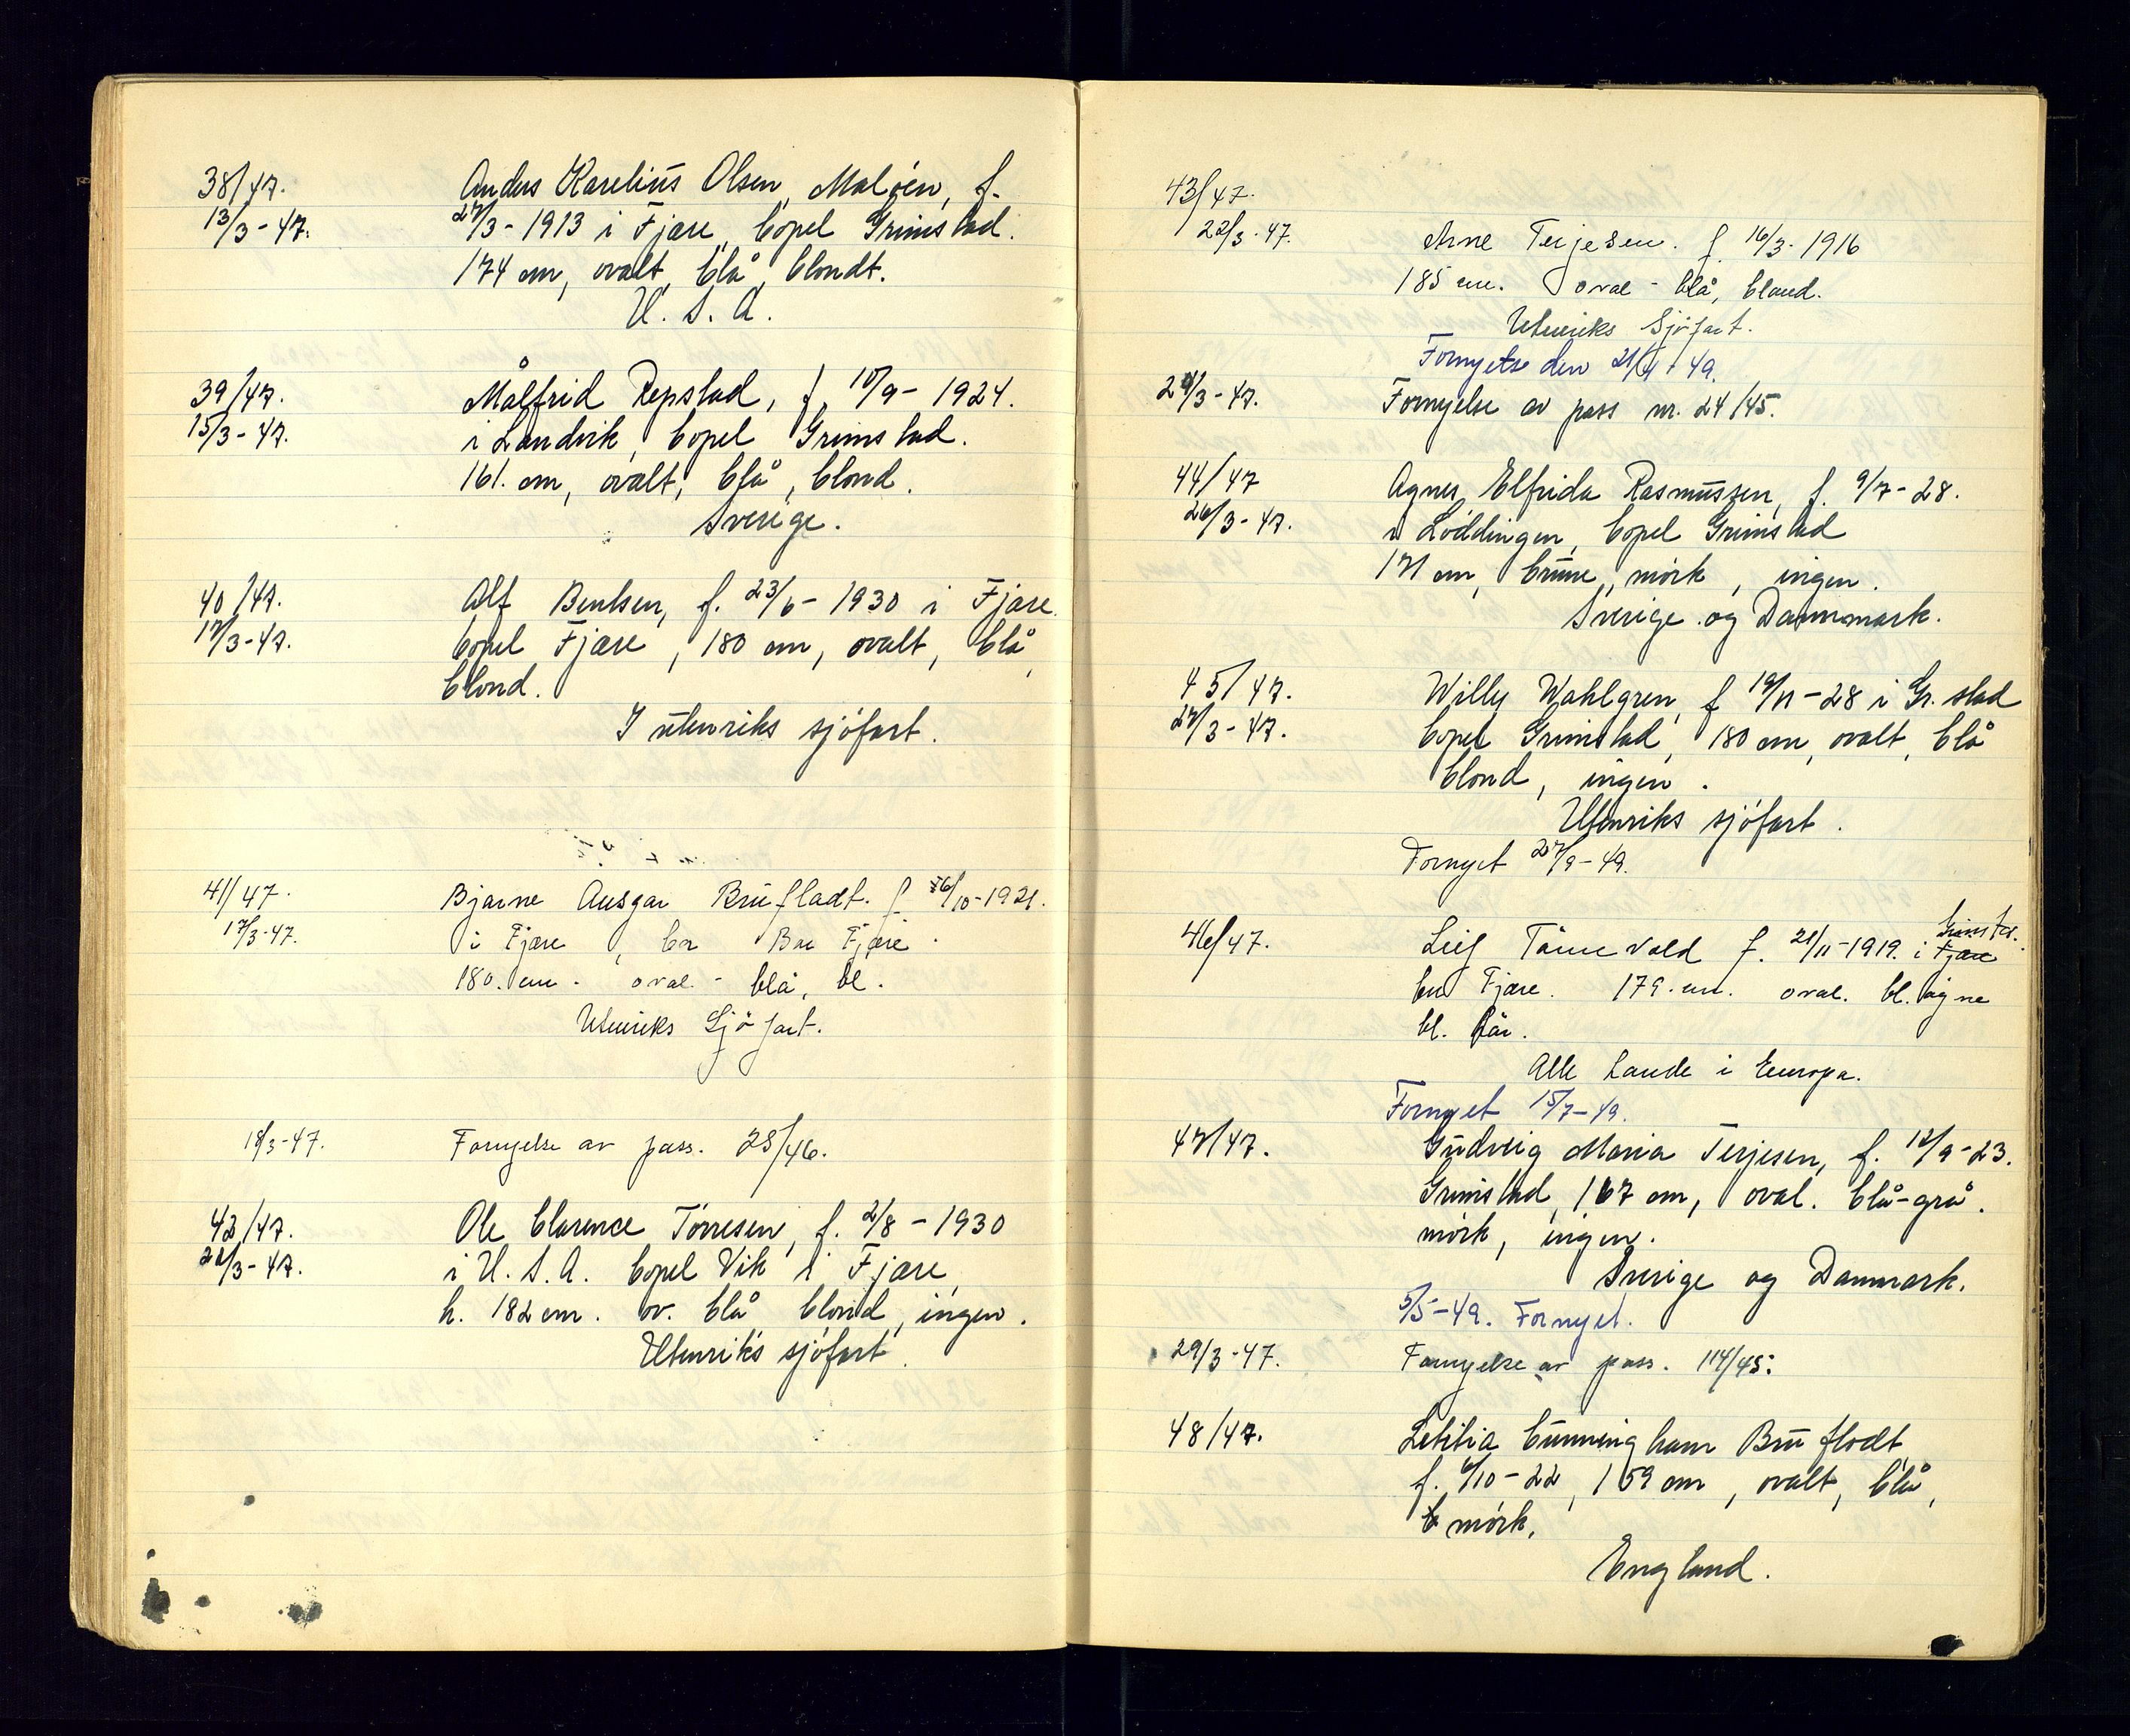 38/47. Anders Karelius Olsen, Maløen, f.
13/3-47. 27/3-1913 i Fjære, bopel Grimstad.
174 cm, ovalt, blå, blondt.
U. S. A.
39/47. Målfrid Repstad, f. 10/9-1924.
15/3-47. i Landvik, bopel Grimstad.
161. cm, ovalt, blå, blond.
Sverige.
40/47. Alf Bentsen, f. 23/6-1930 i Fjære.
17/3-47. bopel Fjære, 180 cm, ovalt, blå,
blond.
I utenriks sjøfart.
41/47. Bjarne Ansgar Brufladt. f 16/10-1921.
17/3-47. i Fjære, bor Bie Fjære.
180. cm. oval - blå, bl.
Utenriks Sjøfart.
18/3-47. Fornyelse av pass. 28/46.
42/47. Ole Clarence Tørresen, f. 2/8-1930
22/3-47. i U. S. A. bopel Vik i Fjære,
h. 182 cm. ov. blå, blond, ingen.
Utenriks sjøfart.
43/47.
22/3-47. Arne Terjesen. f. 16/3-1916
185 cm. oval - blå, blond.
Utenriks Sjøfart.
Fornyetse den 21/4-49.
29/3-47. Fornyelse av pass nr. 24/45.
44/47 Agnes Elfrida Rasmussen, f. 9/7-28.
26/3-47. i Løddingen, bopel Grimstad
171 cm, brune, mørk, ingen.
Sverige og Dannmark.
45/47. Willy Wahlgren, f 19/11-28 i Gr.stad
27/3-47. bopel Grimstad, 180 cm, ovalt, blå
blond, ingen.
Utenriks sjøfart.
Fornyet 27/9-49.
46/47. Leif Tånevold f. 21/11-1919. i Fjære Grimstd.
bor Fjære. 179. cm. oval. bl. øgne
bl. hår.
Alle Lande i Europa.
Fornyet 15/7-49.
47/47. Gudveig Maria Terjesen, f. 12/9-23.
Grimstad, 167 cm, oval. blå-grå.
mørk, ingen.
Sverige og Danmark.
5/5-49. Fornyet.
29/3-47. Fornyelse av pass. 114/45.
48/47. Letitia Cunningham Bruflodt,
f. 6/10-22, 159 cm, ovalt, blå,
b mørk,
England.